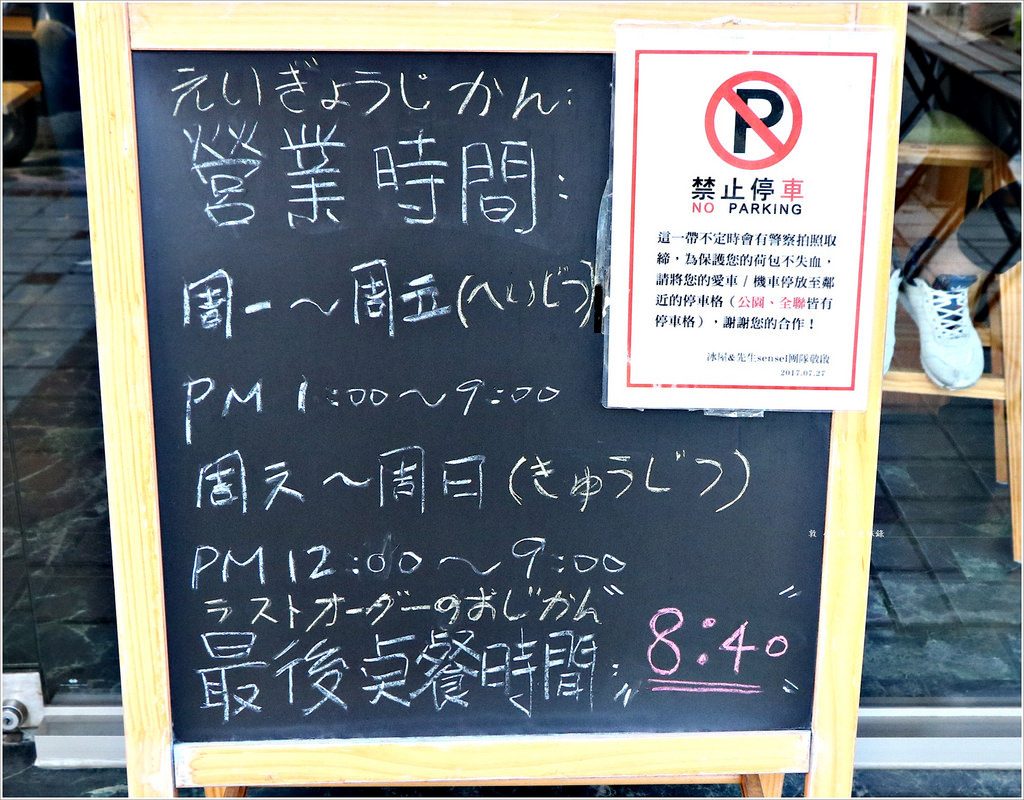 えいぎょうじかん:
營業時間:
周一～周五(へいじつ)
PM 1:00～9:00
周六～周日(きゅうじつ)
PM 12:00～9:00
ラストオーダーのおじかん
最後点餐時間: "8:40"
P
禁止停車
NO PARKING
這一帶不定時會有警察拍照取
締，為保護您的荷包不失血，
請將您的愛車/機車停放至鄰
近的停車格（公園、全聯皆有
停車格），謝謝您的合作！
冰屋&先生sensei團隊敬啟
2017.07.27